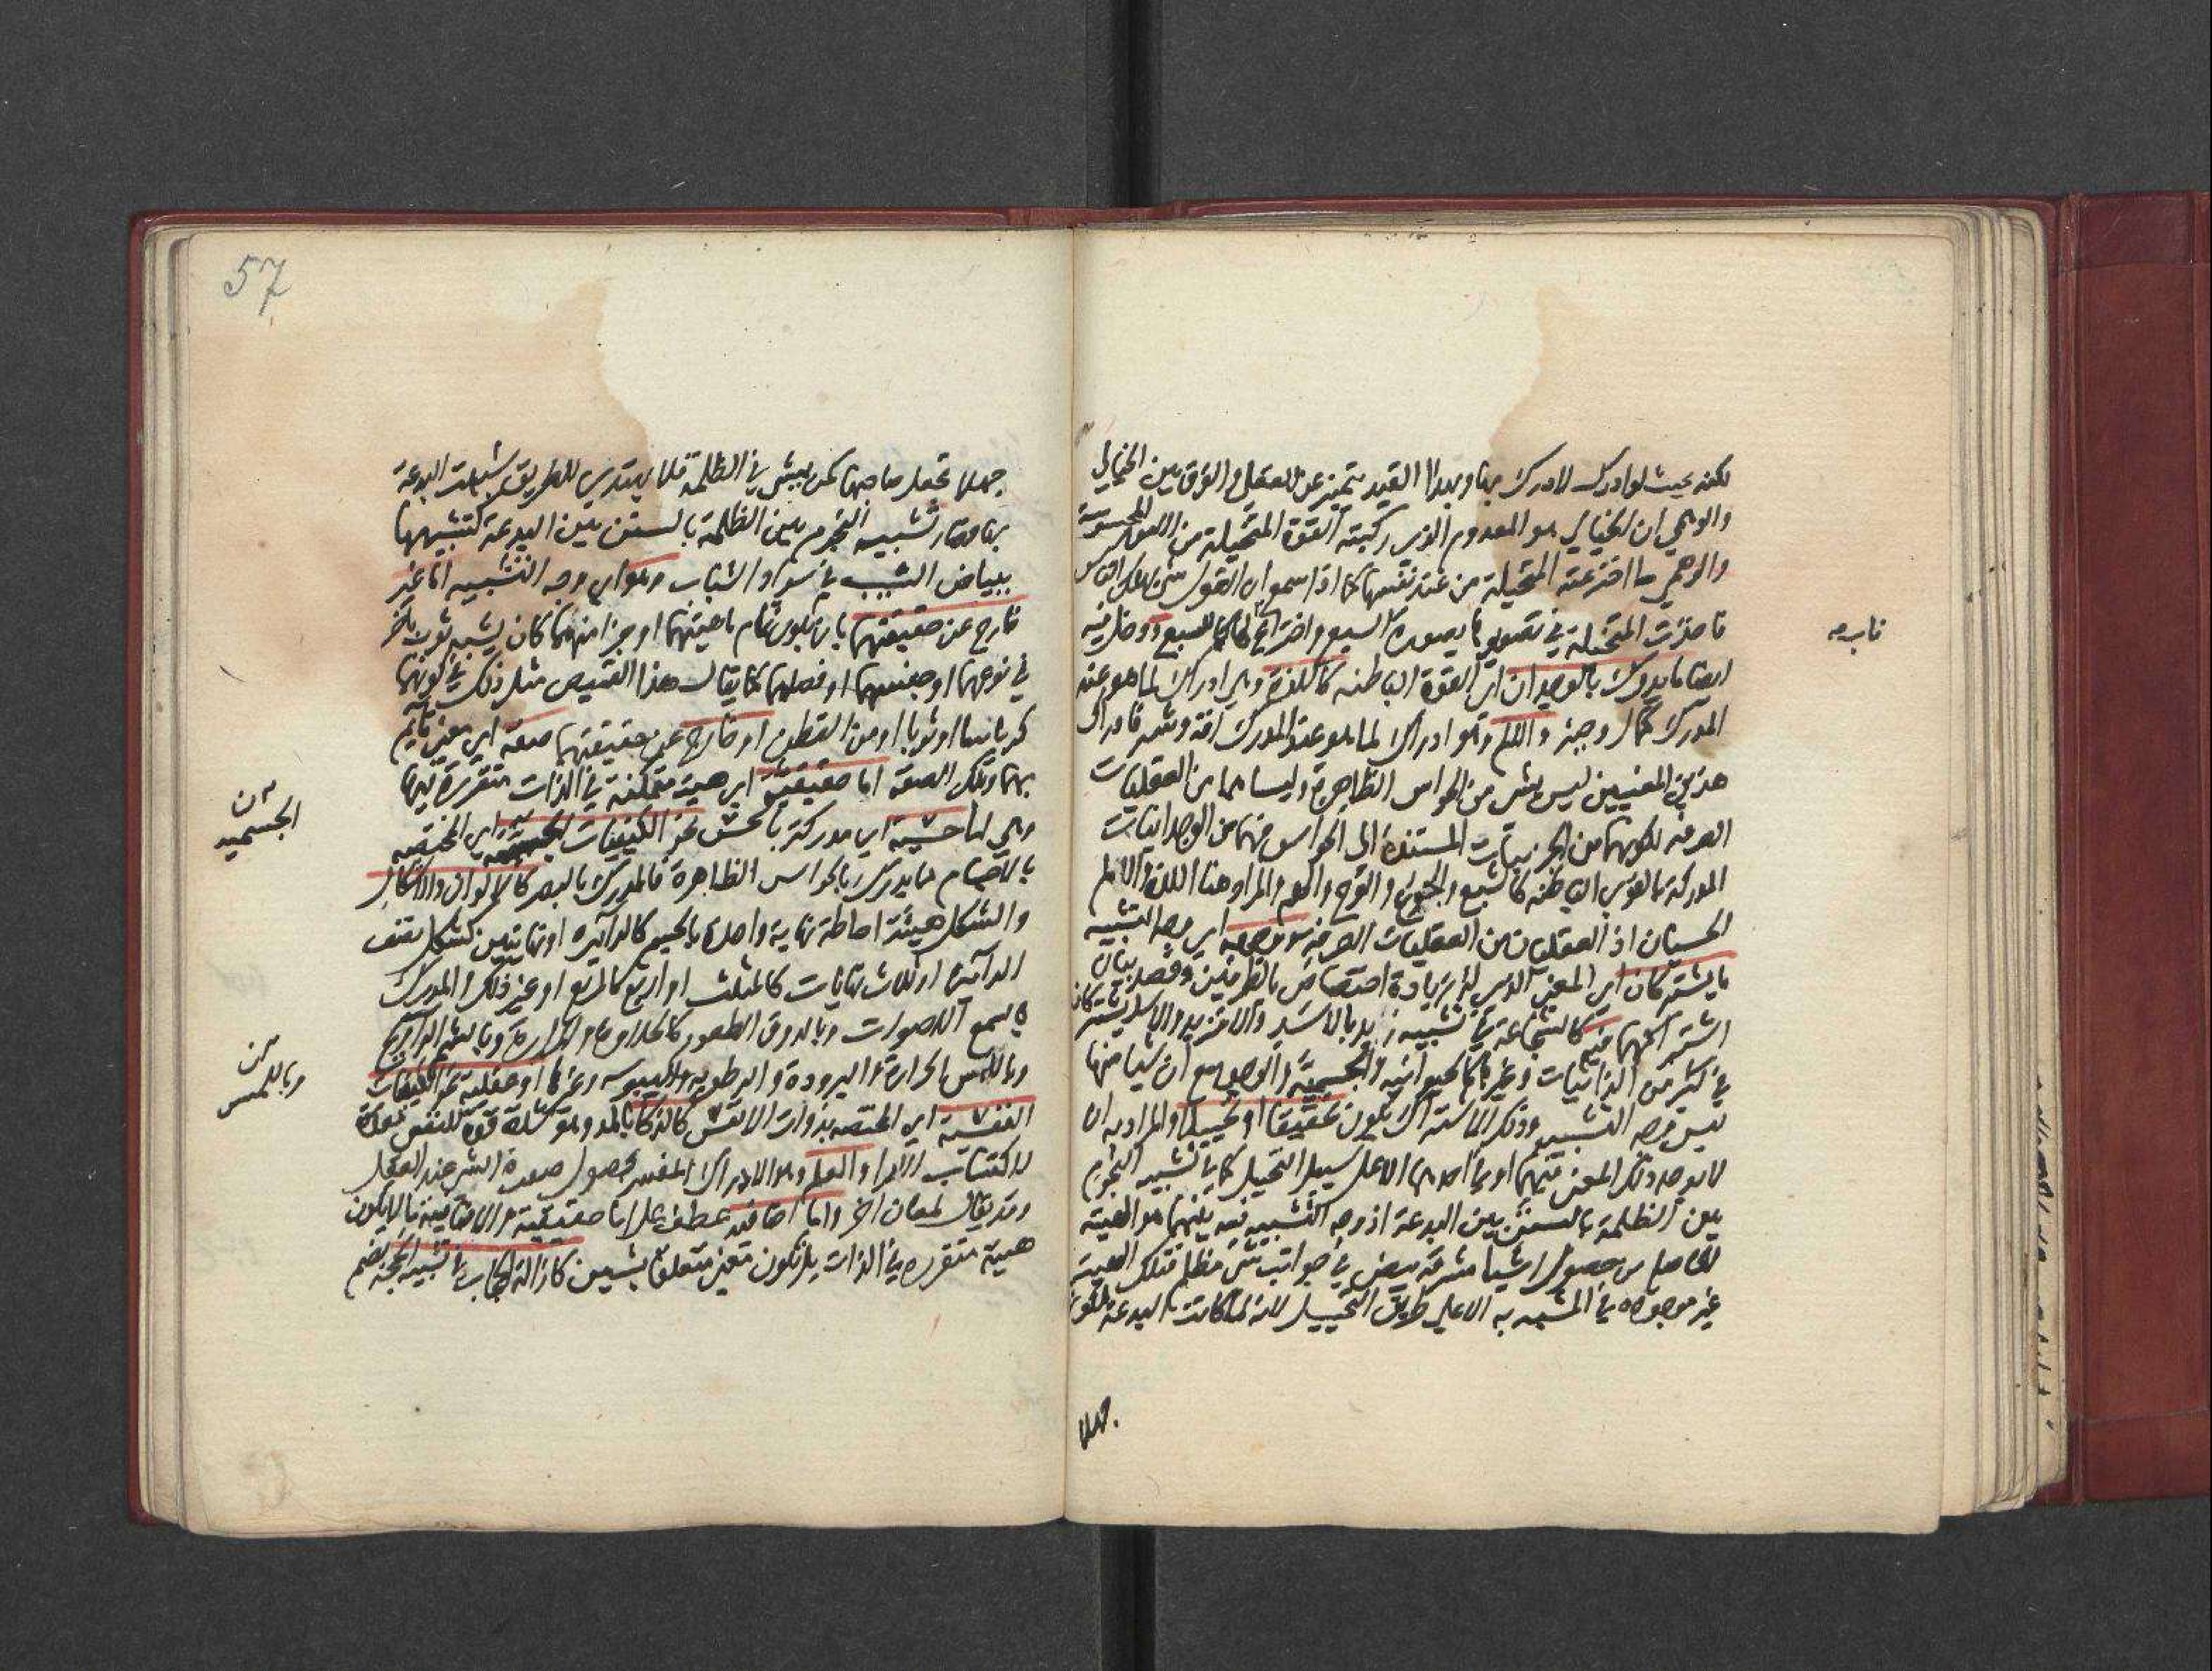 لكنه بحيث لو ادرك لادرك بها وبهذا القيد يتميز عن العقلي والفرق بين الخيالي
والوهمي ان الخيالي هو المعدوم الذي ركبته القوة المتخيلة من الامور المحسوسة
والوهمي ما اخترعته المتخيلة من عند نفسها كما اذا سمع ان الغول شي يهلك الناس
فاخذت المتخيلة في تصويرها بصورة السبع واختراع ناب لها كما للسبع ودخل فيه
ناب صح
ايضا ما يدرك بالوجدان اي القوة الباطنه كاللذة وهي ادراك لما هو عند
المدرك كمال وخير والالم وهو ادراك لما هو عند المدرك افة وشر فادراك
هذين المعنيين ليس بشي من الحواس الظاهرة وليسا هما من العقليات
الصرفه لكونهما من الجزئيات المستندة الى الحواس فهما من الوجدانيات
المدركة بالقوى الباطنه كالشبع والجوع والفرح والهم والمراد هنا اللذة والالم
الحسيان اذ العقليان من العقليات الصرفة ووجهه اي وجه التشبيه
ما يشتركان اي المعنى الذي له زيادة اختصاص بالطرفين وقصد بيان
اشتراكهما فيه كالشجاعة في تشبيه زيد بالاسد والا فزيد والاسد يشتركان
في كثير من الذاتيات وغيرها كالحيوانيه والجسمية والوجود مع ان شيا منها
ليس وجه التشبيه وذلك الاشتراك يكون تحقيقا او تخييلا والمراد به ان
لا يوجد ذلك المعنى فيهما او في احدهما الا على سبيل التخيل كما في تشبيه النجوم
بين الظلمة بالسنن بين البدعة اذ وجه التشبيه فيه بينهما هو الهيئة
الحاصلة من حصول اشيا مشرقة بيض في جوانب شي مظلم فتلك الهيئة
غير موجوده في المشبه به الا على طريق التخييل لانه لما كانت البدعة وكل
جهلا
57
جهلا تجعل صاحبها كمن يمشي في الظلمة فلا يهتدي للطريق شبهت البدعة
بها وصار تشبيه النجوم بين الظلمة بالسنن بين البدعة كتشبيهها
ببياض الشيب في سواد الشباب وهو اي وجه التشبيه اما غير
خارج عن حقيقتهما بان يكون تمام ماهيتهما او جزا منهما كان يشبه ثوب باخر
في نوعهما او جنسهما او فصلهما كما يقال هذا القميص مثل ذلك في كونهما
كرباسا او ثوبا او من القطن او خارج عن حقيقتهما صفة اي معنى قايم
بهما وتلك الصفة اما حقيقية اي هيئة متمكنة في الذات متقررة فيها
وهي اما حسية اي مدركة بالحس نحو الكيفيات اي المختصه
الجسميه ن
بالاجسام مما يدرك بالحواس الظاهرة فالمدرك بالبصر كالالوان والاشكال
والشكل هيئة احاطة نهاية واحدة بالجسم كالدايرة او نهايتين كشكل نصف
الدايرة او ثلاث نهايات كالمثلث او اربع كالمربع او غير ذلك والمدرك
بالسمع الاصوات وبالذوق الطعوم كالحلاوة والمرارة وبالشم الروايح
وباللمس الحرارة والبرودة والرطوبه واليبوسه وغيرها او عقلية نحو الكيفيات
وباللمس ن
النفسية اي المختصه بذوات الانفس كالذكا بالمد وهو شدة قوة للنفس معدة
لاكتساب الارا والعلم وهو الادراك المفسر بحصول صورة الشي عند العقل
وقد يقال لمعان اخر واما اضافيه عطف على اما حقيقية والاضافية ما لا يكون
هيئة متقررة في الذات بل تكون معنى متعلقا بشيين كازالة الحجاب في تشبيه الحجه بضم